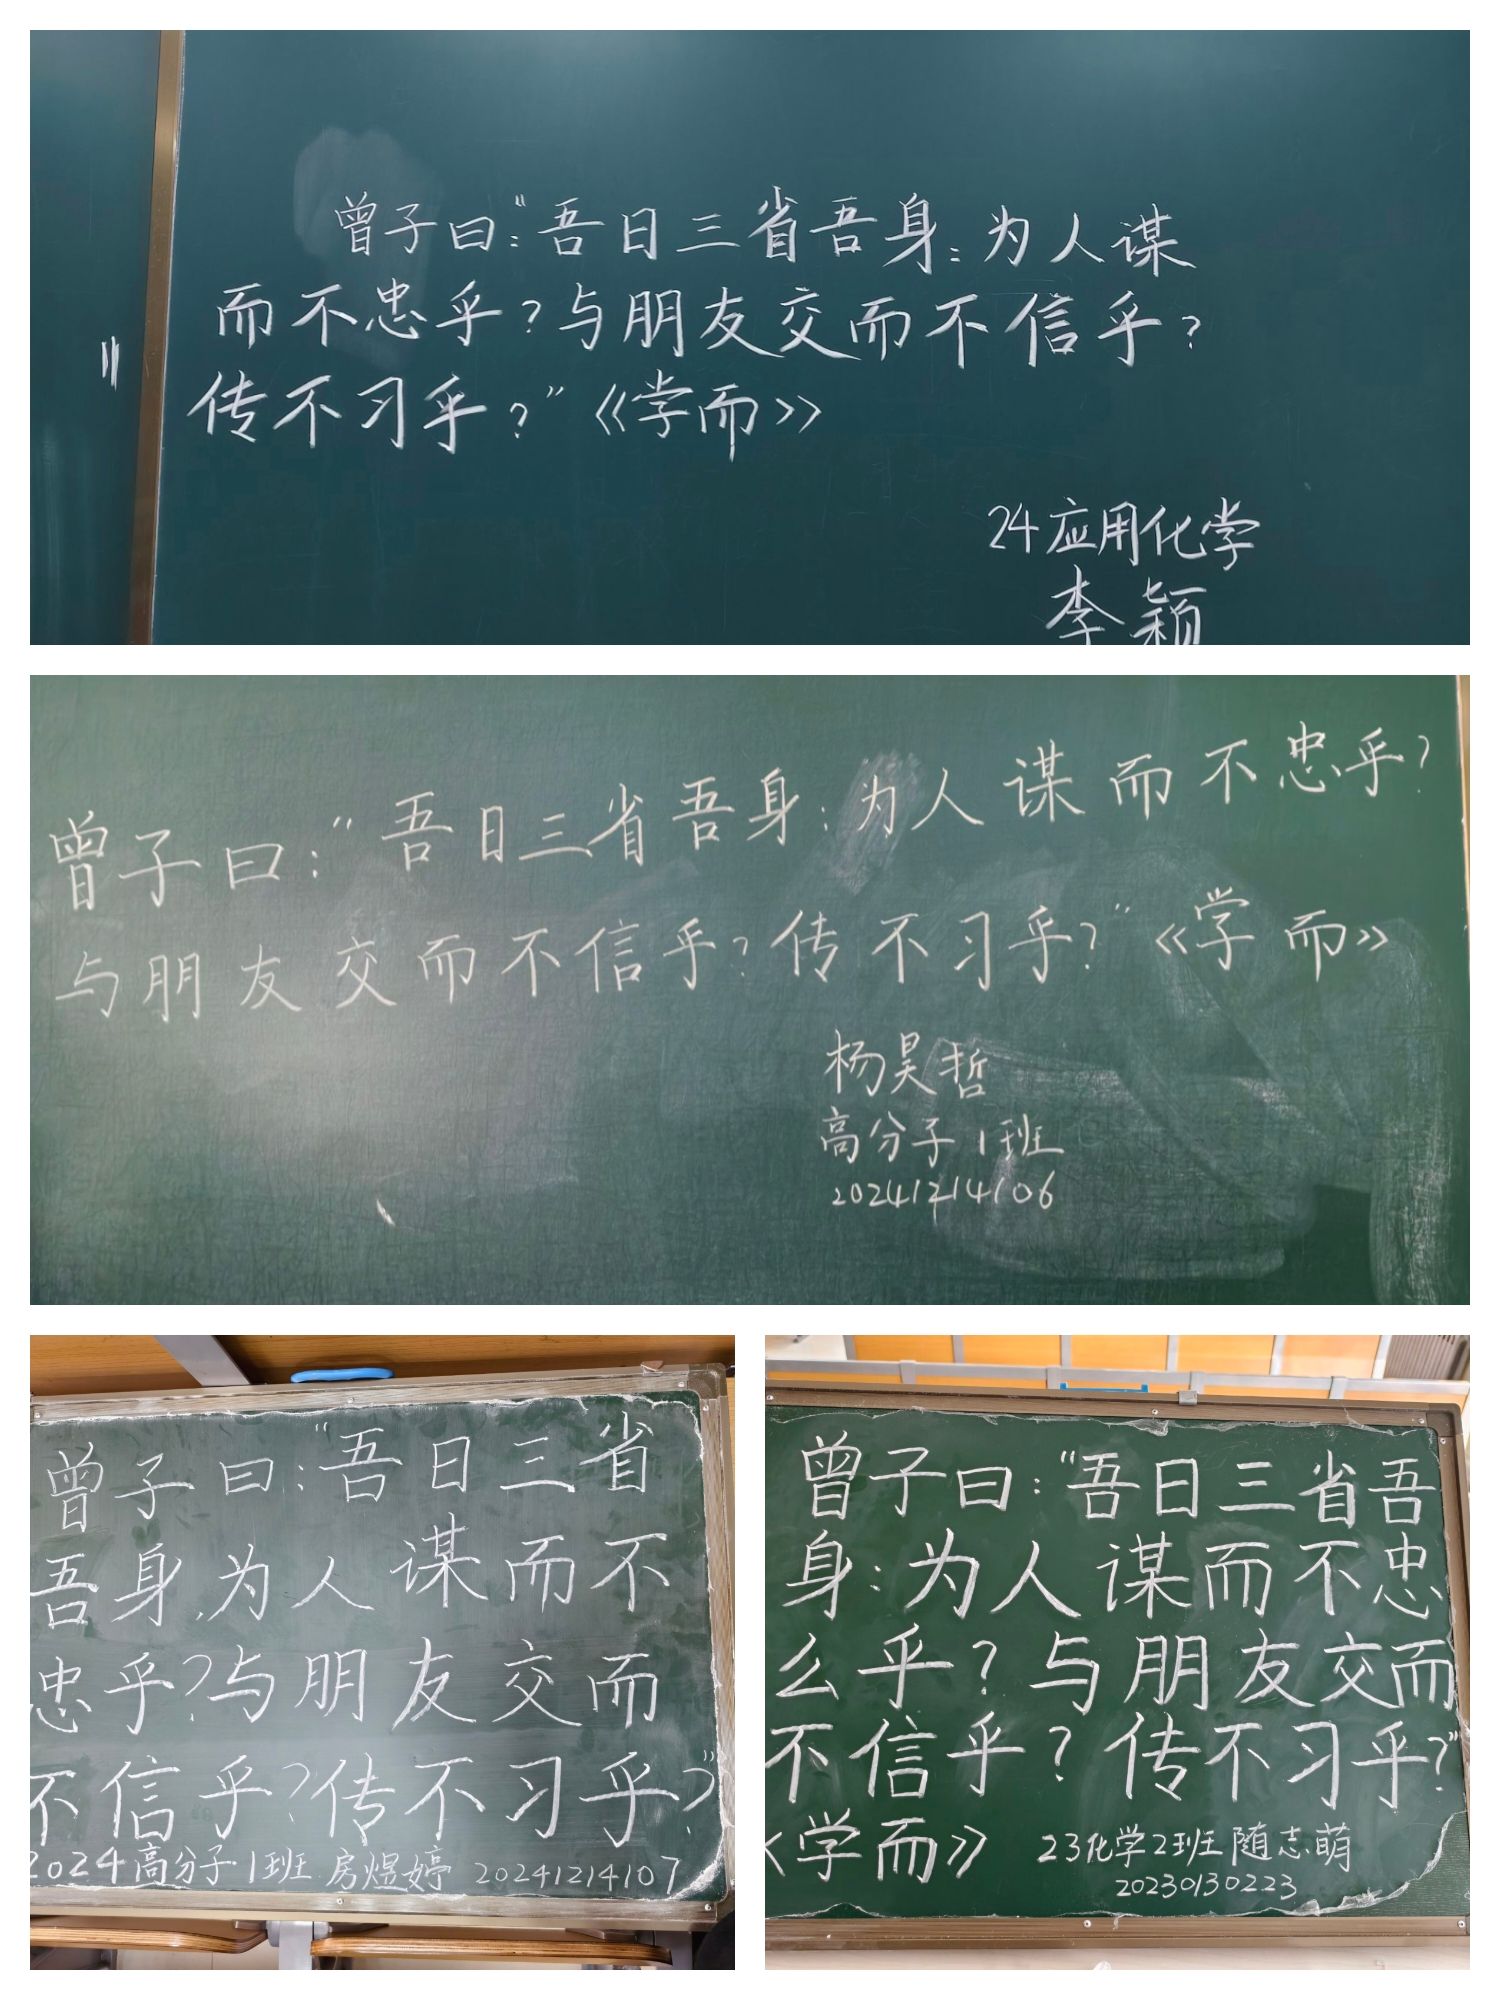 曾子曰:“吾日三省吾身:为人谋
而不忠乎?与朋友交而不信乎?
传不习乎?”《学而》
24应用化学
李颖
曾子曰:“吾日三省吾身:为人谋而不忠乎?
与朋友交而不信乎?传不习乎?”《学而》
杨昊哲
高分子1班
20241214106
曾子曰:“吾日三省
吾身,为人谋而不
忠乎?与朋友交而
不信乎?传不习乎?”
2024高分子1班 房煜婷 20241214107
曾子曰:“吾日三省吾
身:为人谋而不忠
么乎?与朋友交而
不信乎?传不习乎?”
《学而》
23化学2班 随志萌
20230130223